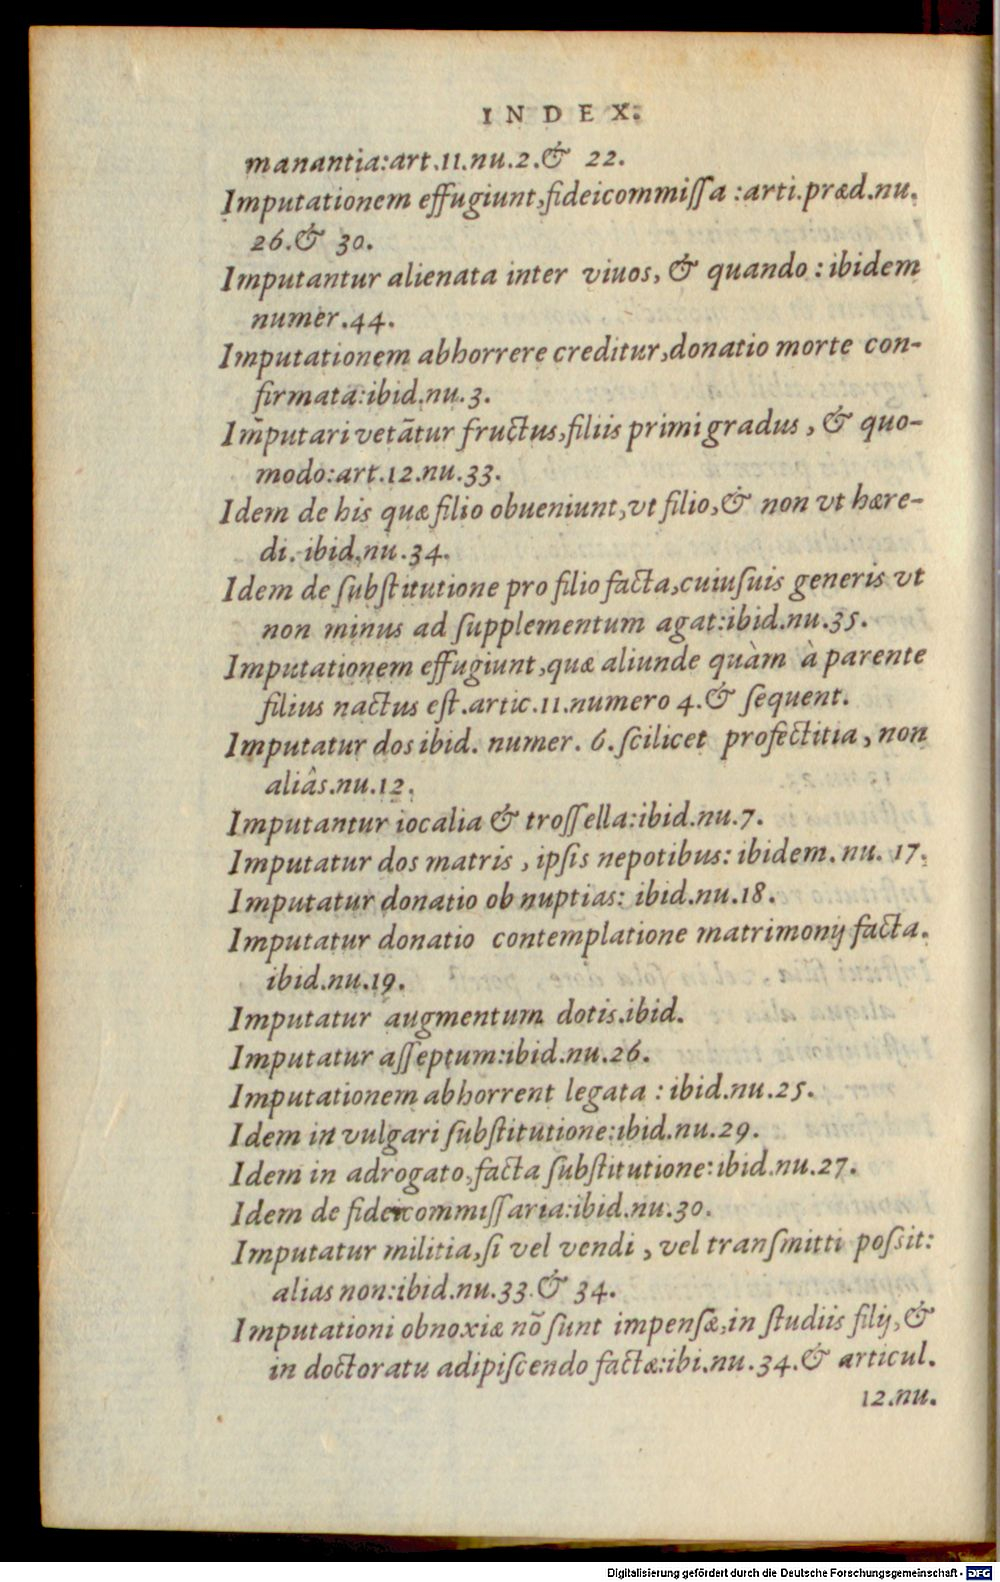 INDEX.
manantia:art.11.nu.2.& 22.
Imputationem effugiunt,fideicommiſſa :arti.præd.nu.
26.& 30.
Imputantur alienata inter viuos, & quando : ibidem
numer.44.
Imputationem abhorrere creditur,donatio morte con-
firmata:ibid.nu.3.
Im̃putari vetãtur fructus,filiis primi gradus, & quo-
modo:art.12.nu.33.
Idem de his quæ filio obueniunt,vt filio,& non vt hære-
di. ibid.nu.34.
Idem de ſubſtitutione pro filio facta,cuiuſuis generis vt
non minus ad ſupplementum agat:ibid.nu.35.
Imputationem effugiunt,quæ aliunde quàm à parente
filius nactus eſt.artic.11.numero 4.& ſequent.
Imputatur dos ibid. numer. 6.ſcilicet profectitia, non
aliâs.nu.12.
Imputantur iocalia & troſſella:ibid.nu.7.
Imputatur dos matris, ipſis nepotibus: ibidem. nu. 17.
Imputatur donatio ob nuptias: ibid.nu.18.
Imputatur donatio contemplatione matrimonij facta.
ibid.nu.19.
Imputatur augmentum dotis.ibid.
Imputatur aſſeptum:ibid.nu.26.
Imputationem abhorrent legata : ibid.nu.25.
Idem in vulgari ſubſtitutione:ibid.nu.29.
Idem in adrogato,facta ſubſtitutione:ibid.nu.27.
Idem de fideicommiſſaria:ibid.nu.30.
Imputatur militia,ſi vel vendi, vel tranſmitti poſsit:
alias non:ibid.nu.33.& 34.
Imputationi obnoxiæ nõ ſunt impenſæ,in ſtudiis filij,&
in doctoratu adipiſcendo factæ:ibi.nu.34.& articul.
12.nu.
Digitalisierung gefördert durch die Deutsche Forschungsgemeinschaft - DFG